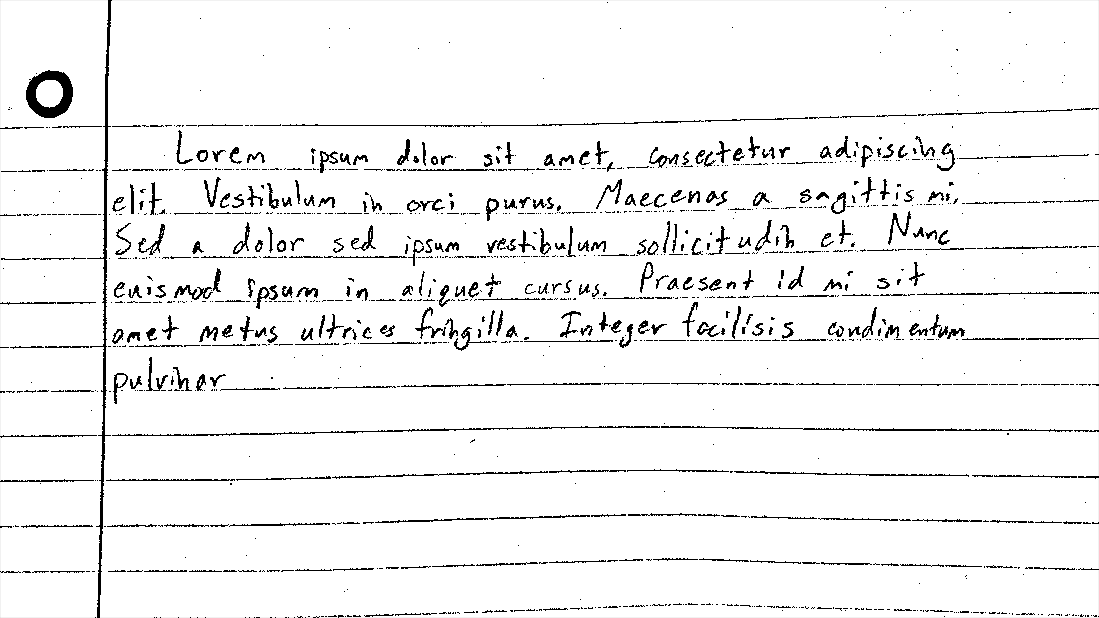 Lorem ipsum dolor sit amet, consectetur adipiscing
elit. Vestibulum in orci purus. Maecenas a sagittis mi.
Sed a dolor sed ipsum vestibulum sollicitudin et. Nunc
euismod ipsum in aliquet cursus. Praesent id mi sit
amet metus ultrices fringilla. Integer facilisis condimentum
pulvinar